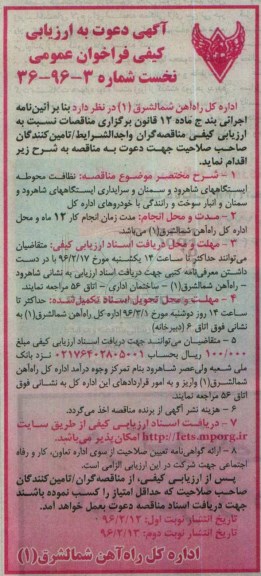 آگهی دعوت به ارزیابی
کیفی فراخوان عمومی
نخست شماره ۳-۹۶-۳۶
اداره کل راه‌آهن شمالشرق (۱) در نظر دارد بنا بر آئین‌نامه
اجرائی بند ج ماده ۱۲ قانون برگزاری مناقصات نسبت به
ارزیابی کیفی مناقصه‌گران واجدالشرایط/تامین‌کنندگان
صاحب صلاحیت جهت دعوت به مناقصه به شرح زیر
اقدام نماید.
۱ - شرح مختصر موضوع مناقصه: نظافت محوطه
ایستگاههای شاهرود و سمنان و سرایداری ایستگاههای شاهرود و
سمنان و انبار سوخت و رانندگی با خودروهای اداره کل
۲ - مدت و محل انجام: مدت زمان انجام کار ۱۲ ماه و محل
اداره کل راه‌آهن شمالشرق(۱) می‌باشد.
۳ - مهلت و محل دریافت اسناد ارزیابی کیفی: متقاضیان
می‌توانند حداکثر تا ساعت ۱۴ یکشنبه مورخ ۹۶/۲/۱۷ با در دست
داشتن معرفی‌نامه کتبی جهت دریافت اسناد ارزیابی به نشانی شاهرود
- راه‌آهن شمالشرق(۱) - ساختمان اداری - اتاق ۵۶ مراجعه نمایند.
۴ - مهلت و محل تحویل اسناد تکمیل‌شده: حداکثر تا
ساعت ۱۴ روز دوشنبه مورخ ۹۶/۳/۱ اداره کل راه‌آهن شمالشرق(۱) به
نشانی فوق اتاق ۶ (دبیرخانه)
۵ - متقاضیان می‌توانند جهت دریافت اسناد ارزیابی کیفی مبلغ
۱۰۰/۰۰۰ ریال بحساب ۰۲۱۷۶۲۰۲۸۰۵۰۰۱ نزد بانک
ملی شعبه ولی‌عصر شاهرود بنام تمرکز وجوه درآمد اداره کل راه‌آهن
شمالشرق(۱) واریز و به امور قراردادهای این اداره کل به نشانی فوق
اتاق ۵۶ مراجعه نمایند.
۶ - هزینه نشر آگهی از برنده مناقصه اخذ می‌گردد.
۷ - دریافت اسناد ارزیابی کیفی از طریق سایت
http://iets.mporg.ir امکان‌پذیر می‌باشد.
۸ - ارائه گواهی‌نامه تعیین صلاحیت از سوی اداره تعاون، کار و رفاه
اجتماعی جهت شرکت در این ارزیابی الزامی است.
پس از ارزیابی کیفی، از مناقصه‌گران/تامین‌کنندگان
صاحب صلاحیت که حداقل امتیاز را کسب نموده باشند
جهت دریافت اسناد مناقصه دعوت بعمل خواهد آمد.
تاریخ انتشار نوبت اول: ۹۶/۲/۱۲
تاریخ انتشار نوبت دوم: ۹۶/۲/۱۳
اداره کل راه‌آهن شمالشرق(۱)